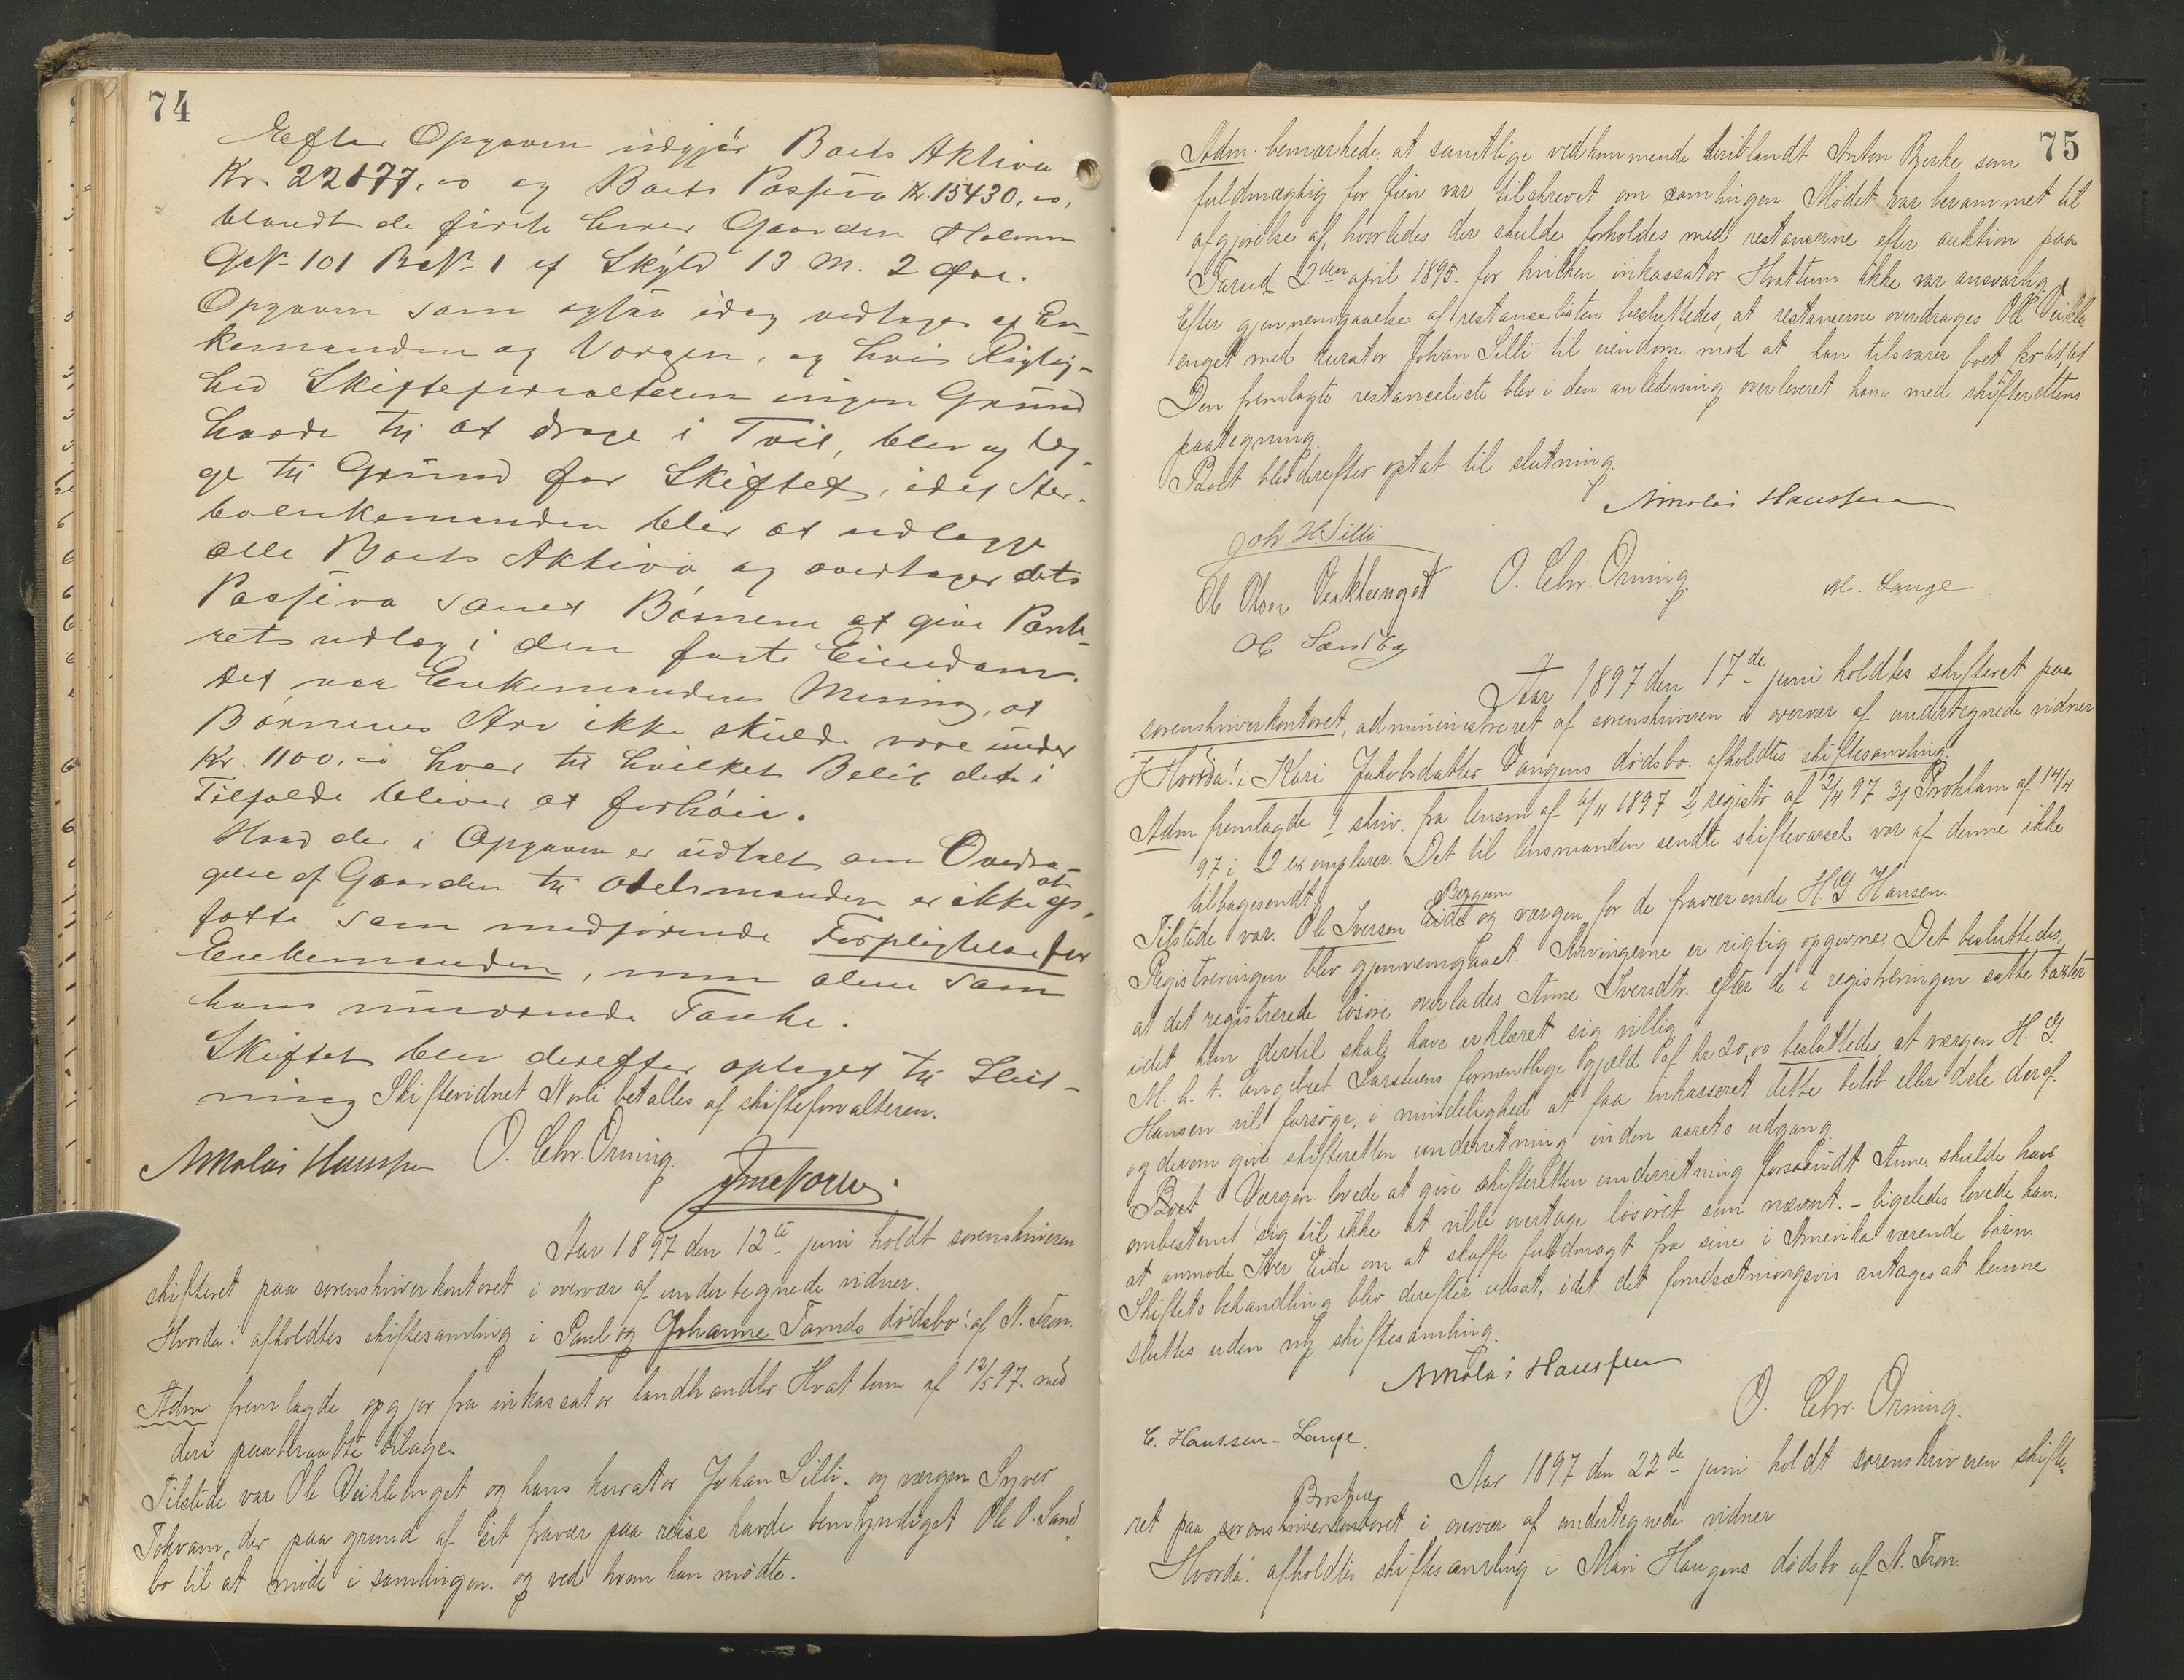 74
Efter Opgaven udgjør Boets Aktiva
Kr. 22177,00 og Boets Passiva Kr. 15430,00,
blandt de første hører Gaarden Holmen
G.№ 101 B.№ 1 af Skyld 13 M. 2 Øre.
Opgaven som ogsaa idag vedtages af En-
kemanden og Vergen, og hvis Rigtig-
hed Skifteforvalteren ingen Grund
havde til at drage i Tvil, blev og læg-
ge til Grund for Skiftet, idet Ster-
boenkemanden blev at udlægge
alle Boets Aktiva og overtager dets
Passiva samt Børnene at give Pant-
rets udlæg i den faste Eiendom.
Det var Enkemandens Mening, at
Børnenes Arv ikke skulde være under
Kr. 1100,00 hver til hvilket Beløb det i
Tilfælde bliver at forhøie.
Hvad der i Opgaven er udtalt om Overdra-
gelse af Gaarden til Odelsmanden er ikke at op-
fatte som medførende Forpligtelse for
Enkemanden, men alene som
hans nuværende Tanke.
Skiftet blev derefter optaget til Slut-
ning Skiftevidnet Norli betalles af skifteforvalteren.
Nikolai Hanssen O. Chr. Orning.
Aar 1897 den 12te juni holdt sorenskriveren
skifteret paa sorenskriverkontoret i overvær af undertegnede vidner.
Hvorda: afholdtes skiftesamling i Paul og Johanne Taruds dødsbo: af N. Fron.
Adm. fremlagde opgjør fra inkassator landhandler Hvattum af 12/5 97. med
deri paaberaabte bilage.
Tilstede var Ole Veikleenget og hans kurator Johan Silli. og værgen Syver
Tokvam, der paa grund af sit fravær paa reise havde bemyndiget Ole P. Sand-
bo til at møde i samlingen. og ved hvem han mødte.
75
Adm. bemærkede. at samtlige vedkommende deriblandt Anton Bjerke som
fuldmægtig for fleir var tilskrevet om samlingen. Mødet var berammet til
afgjørelse af, hvorledes der skulde forholdes med restancerne efter auktion paa
Tarud 2den april 1895. for hvilken inkassator Hvattum ikke var ansvarlig.
Efter gjennemgaaelse af restancelisten besluttedes, at restancerne overdrages Ole Veikle-
enget med kurator Johan Silli til eiendom. mod at han tilsvarer boet kr 61,61
Den fremlagte restanceliste blev i den anledning overleveret ham med skifterettens
paategning.
Boet blev derefter optat til slutning.
Nikolai Hanssen
Joh. H. Silli
Ole Olsen Veikleenget O. Chr. Orning. M. Lange.
Ole Sandbo
Aar 1897 den 17de juni holdtes skifteret paa
sorenskriverkontoret, administreret af sorenskriveren i overvær af undertegnede vidner
Hvorda! i Kari Jakobsdatter Vangens dødsbo. afholdtes skiftesamling.
Adm fremlagde 1 skriv. fra lensm af 6/4 1897 2 registr af 2/4 97 3) Proklam af 14/4
97 i 2 exemplarer. Det til lensmanden sendte skiftevarsel var af denne ikke
tilbagesendt.
Tilstede var. Ole Iversen Eide Bergum og værgen for de fraværende H. G. Hansen.
Registreringen blev gjennemgaaet. Arvingerne er rigtig opgivne. Det besluttedes,
at det registrerede løsøre overlades Anne Iversdtr. efter de i registreringen satte taxter
idet hun dertil skal have erklæret sig villig
M. h. t. Engebret Larstuens formentlige gjæld af kr 20,00 besluttedes, at værgen H. G.
Hansen vil forsøge, i mindelighed at faa inkasseret dette beløb eller dele deraf.
og derom give skifteretten underretning inden aarets udgang
Boet Værgen lovede at give skifteretten underretning forsaavidt Anne skulde have
ombestemt sig til ikke at ville overtage løsøret som nævnt. - ligeledes lovede han.
at anmode Iver Eide om at skaffe fuldmagt fra sine i Amerika værende børn.
Skiftets behandling blev derefter udsat, idet det forudsætningsvis antages at kunne
sluttes uden ny skiftesamling.
Nikolai Hanssen
O. Chr. Orning.
C. Hanssen-Lange.
Aar 1897 den 22de juni holdt sorenskriveren skifte-
ret paa sorenskriverkontoret i overvær af undertegnede vidner.
Hvorda! afholdtes skiftesamling i Mari Haugens dødsbo af N. Fron.